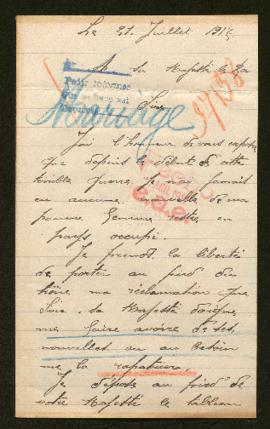 Le 21 Juillet 1917.
A Sa Majesté le Roi
Mariage
Sire
J'ai l'honneur de vous exposer
que depuis le début de cette
terrible guerre, je n'ai jamais
eu aucune nouvelle de ma
pauvre Gemme restée en
pays occupé.
Je prends la liberté
de porter au pied du
trône ma réclamation que
Sire, Sa Majesté daigne
me faire avoire de ses
nouvelles ou au besoin
me la rapatrier.
Je dépose au pied de
votre Majesté le tableau